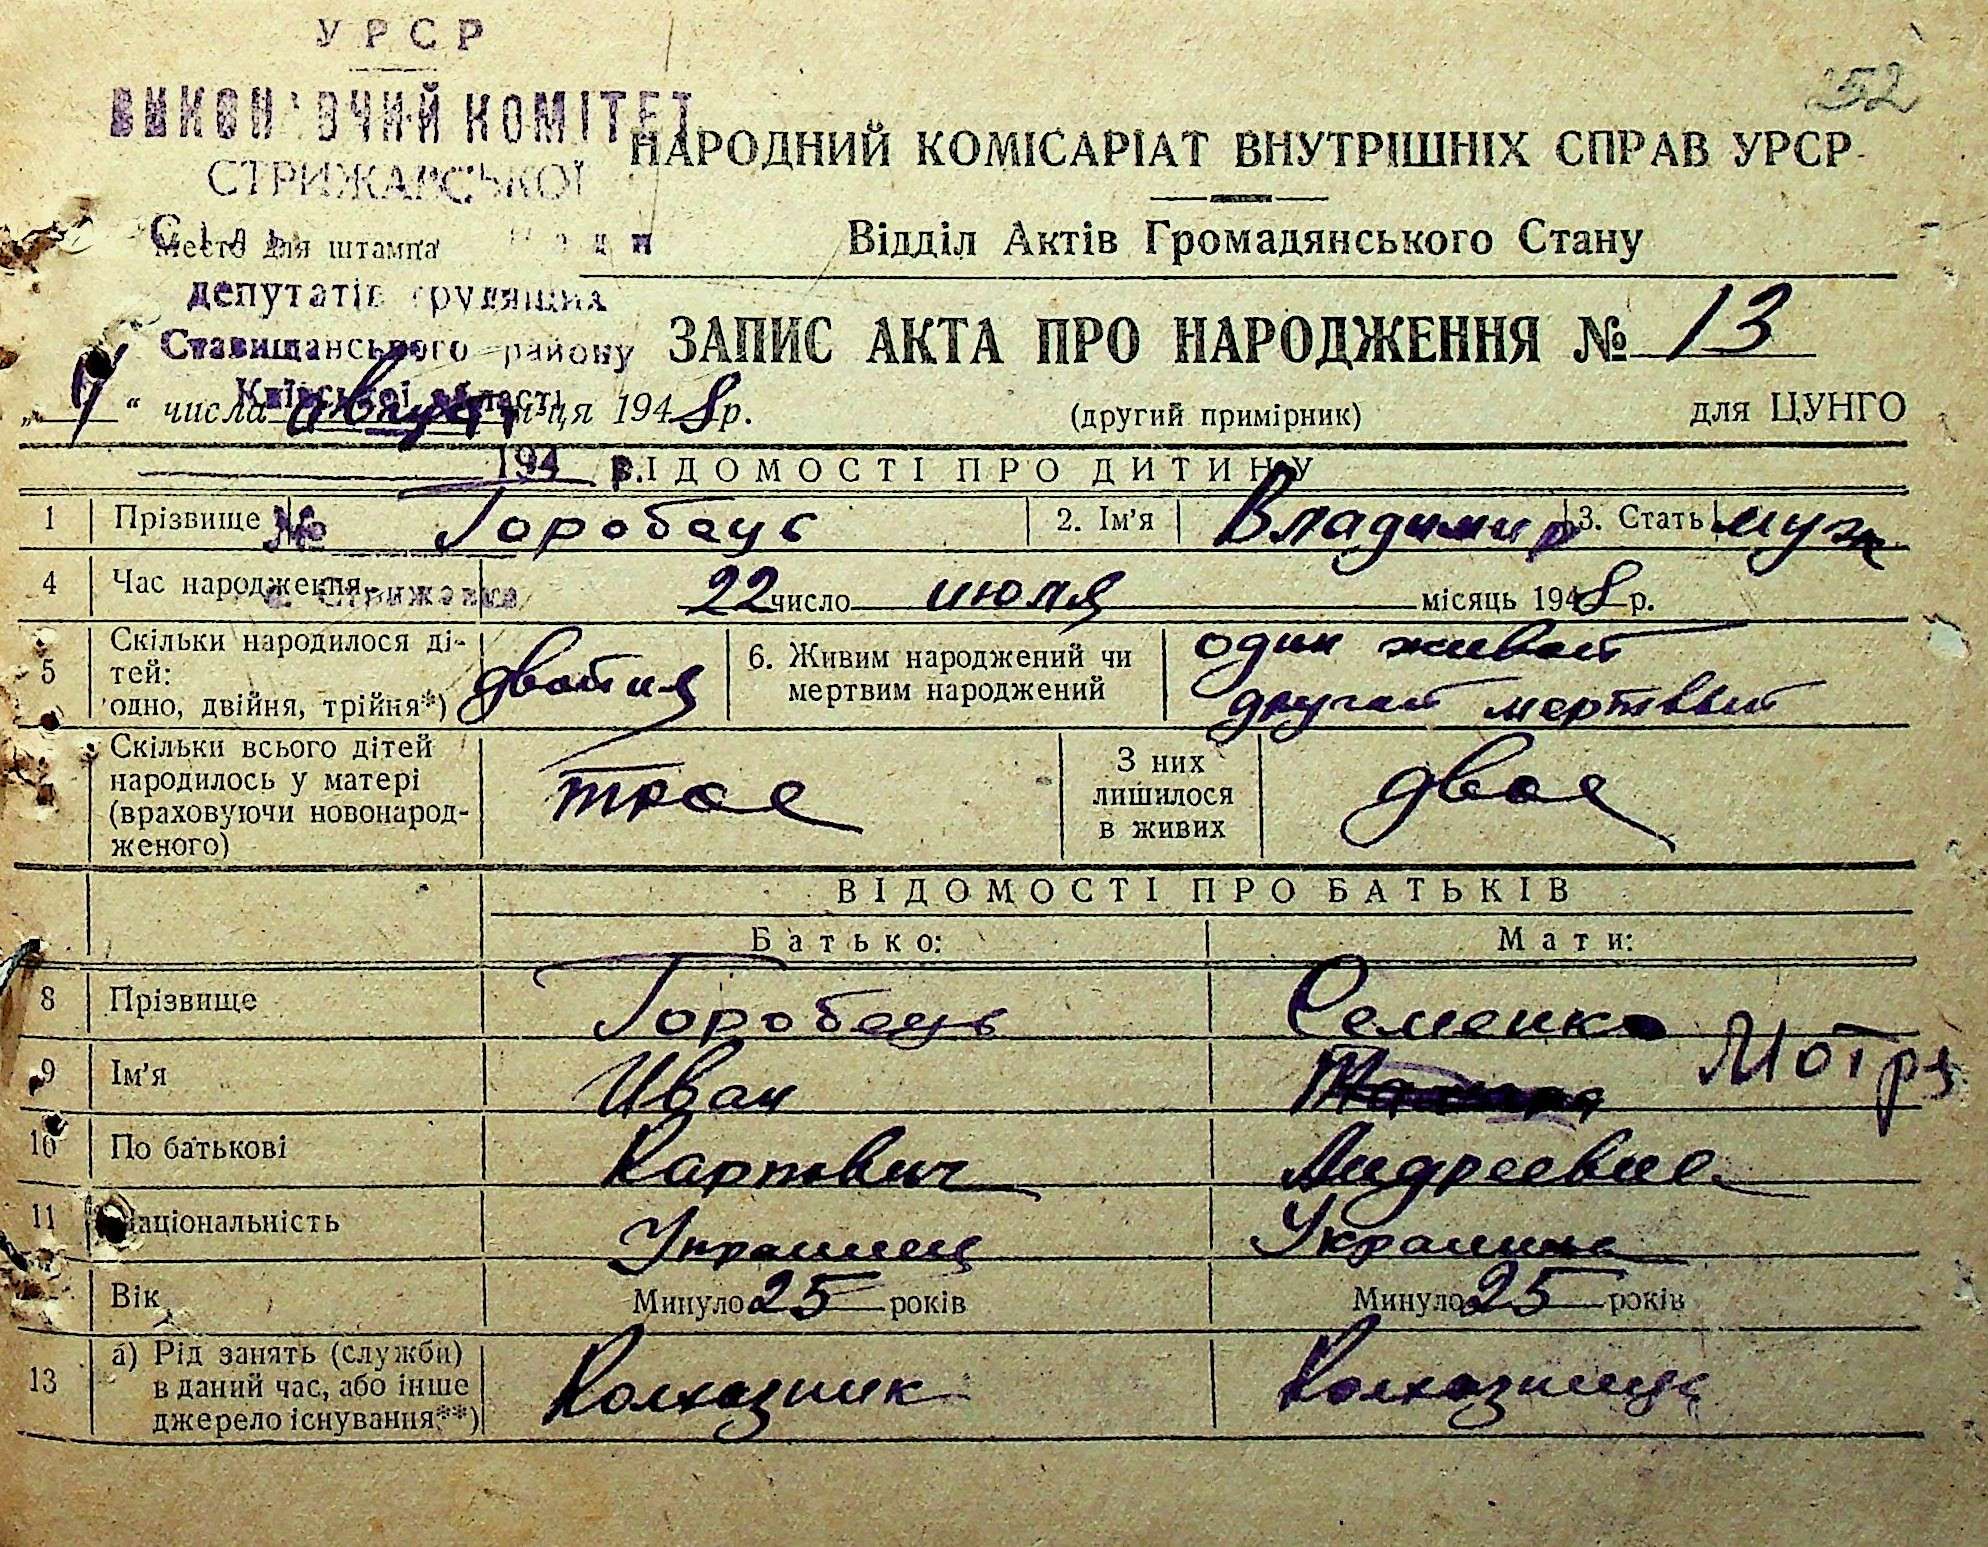 УРСР
252
ВИКОНАВЧИЙ КОМІТЕТ
НАРОДНИЙ КОМІСАРІАТ ВНУТРІШНІХ СПРАВ УРСР
СТРИЖАВСЬКОЇ
Место для штампа
Відділ Актів Громадянського Стану
депутатів трудящих
Ставищанського району
ЗАПИС АКТА ПРО НАРОДЖЕННЯ № 13
Київської області
„ 4 “ числа август м-ця 1948 р.
(другий примірник)
для ЦУНГО
194 р.
ВІДОМОСТІ ПРО ДИТИНУ
1 Прізвище № Горобець 2. Ім'я Владимир 3. Стать муж
4 Час народження 22 число июля місяць 1948 р.
с. Стрижавка
5 Скільки народилося ді-
тей:
одно, двійня, трійня*) двойня
6. Живим народжений чи
мертвим народжений
один живой
другой мертвый
Скільки всього дітей
народилось у матері
(враховуючи новонарод-
женого)
трое
З них
лишилося
в живих
двое
ВІДОМОСТІ ПРО БАТЬКІВ
Батько: Мати:
8 Прізвище Горобець Семенко
9 Ім'я Иван Мотря
10 По батькові Карпович Андреевне
11 Національність Украинец Украинка
Вік Минуло 25 років Минуло 25 років
13 а) Рід занять (служби)
в даний час, або інше
джерело існування**)
Колхозник Колхозница